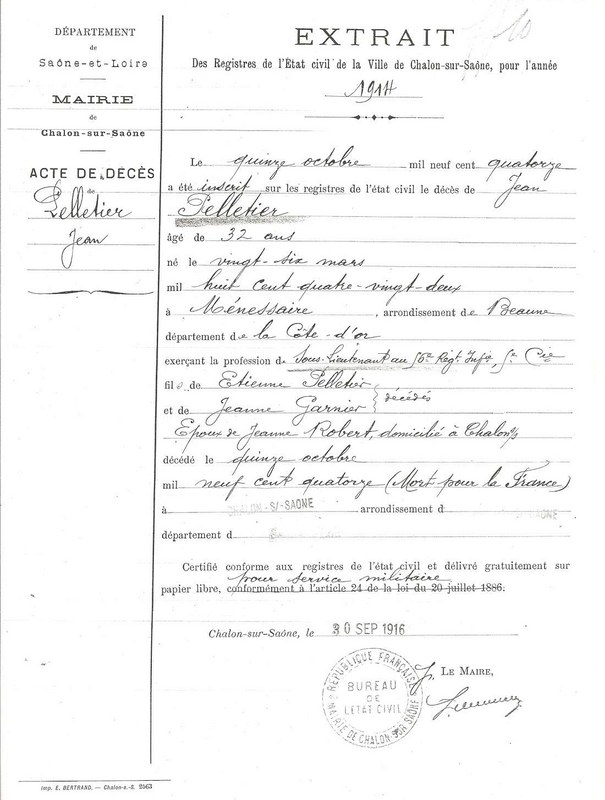 DÉPARTEMENT
de
Saône-et-Loire
MAIRIE
de
Chalon-sur-Saône
ACTE DE DÉCÈS
de
Pelletier
Jean
10
EXTRAIT
Des Registres de l'État civil de la Ville de Chalon-sur-Saône, pour l'année
1914
Le quinze octobre mil neuf cent quatorze
a été inscrit sur les registres de l'état civil le décès de Jean
Pelletier
âgé de 32 ans
né le vingt-six mars
mil huit cent quatre-vingt-deux
à Ménessaire, arrondissement de Beaune
département de la Côte-d'or
exerçant la profession de Sous-Lieutenant au 56e Régt Infie, 5e Cie
fils de Etienne Pelletier
et de Jeanne Garnier } décédés
Epoux de Jeanne Robert, domicilié à Chalon s/s
décédé le quinze octobre
mil neuf cent quatorze (Mort pour la France)
à CHALON-S/-SAONE arrondissement d
département d
Certifié conforme aux registres de l'état civil et délivré gratuitement sur
pour service militaire
papier libre, conformément à l'article 24 de la loi du 20 juillet 1886.
Chalon-sur-Saône, le 30 SEP 1916
LE MAIRE,
RÉPUBLIQUE FRANÇAISE
BUREAU
DE
L'ÉTAT CIVIL
MAIRIE DE CHALON-SUR-SAÔNE
Imp. E. BERTRAND. — Chalon-s.-S. 2563